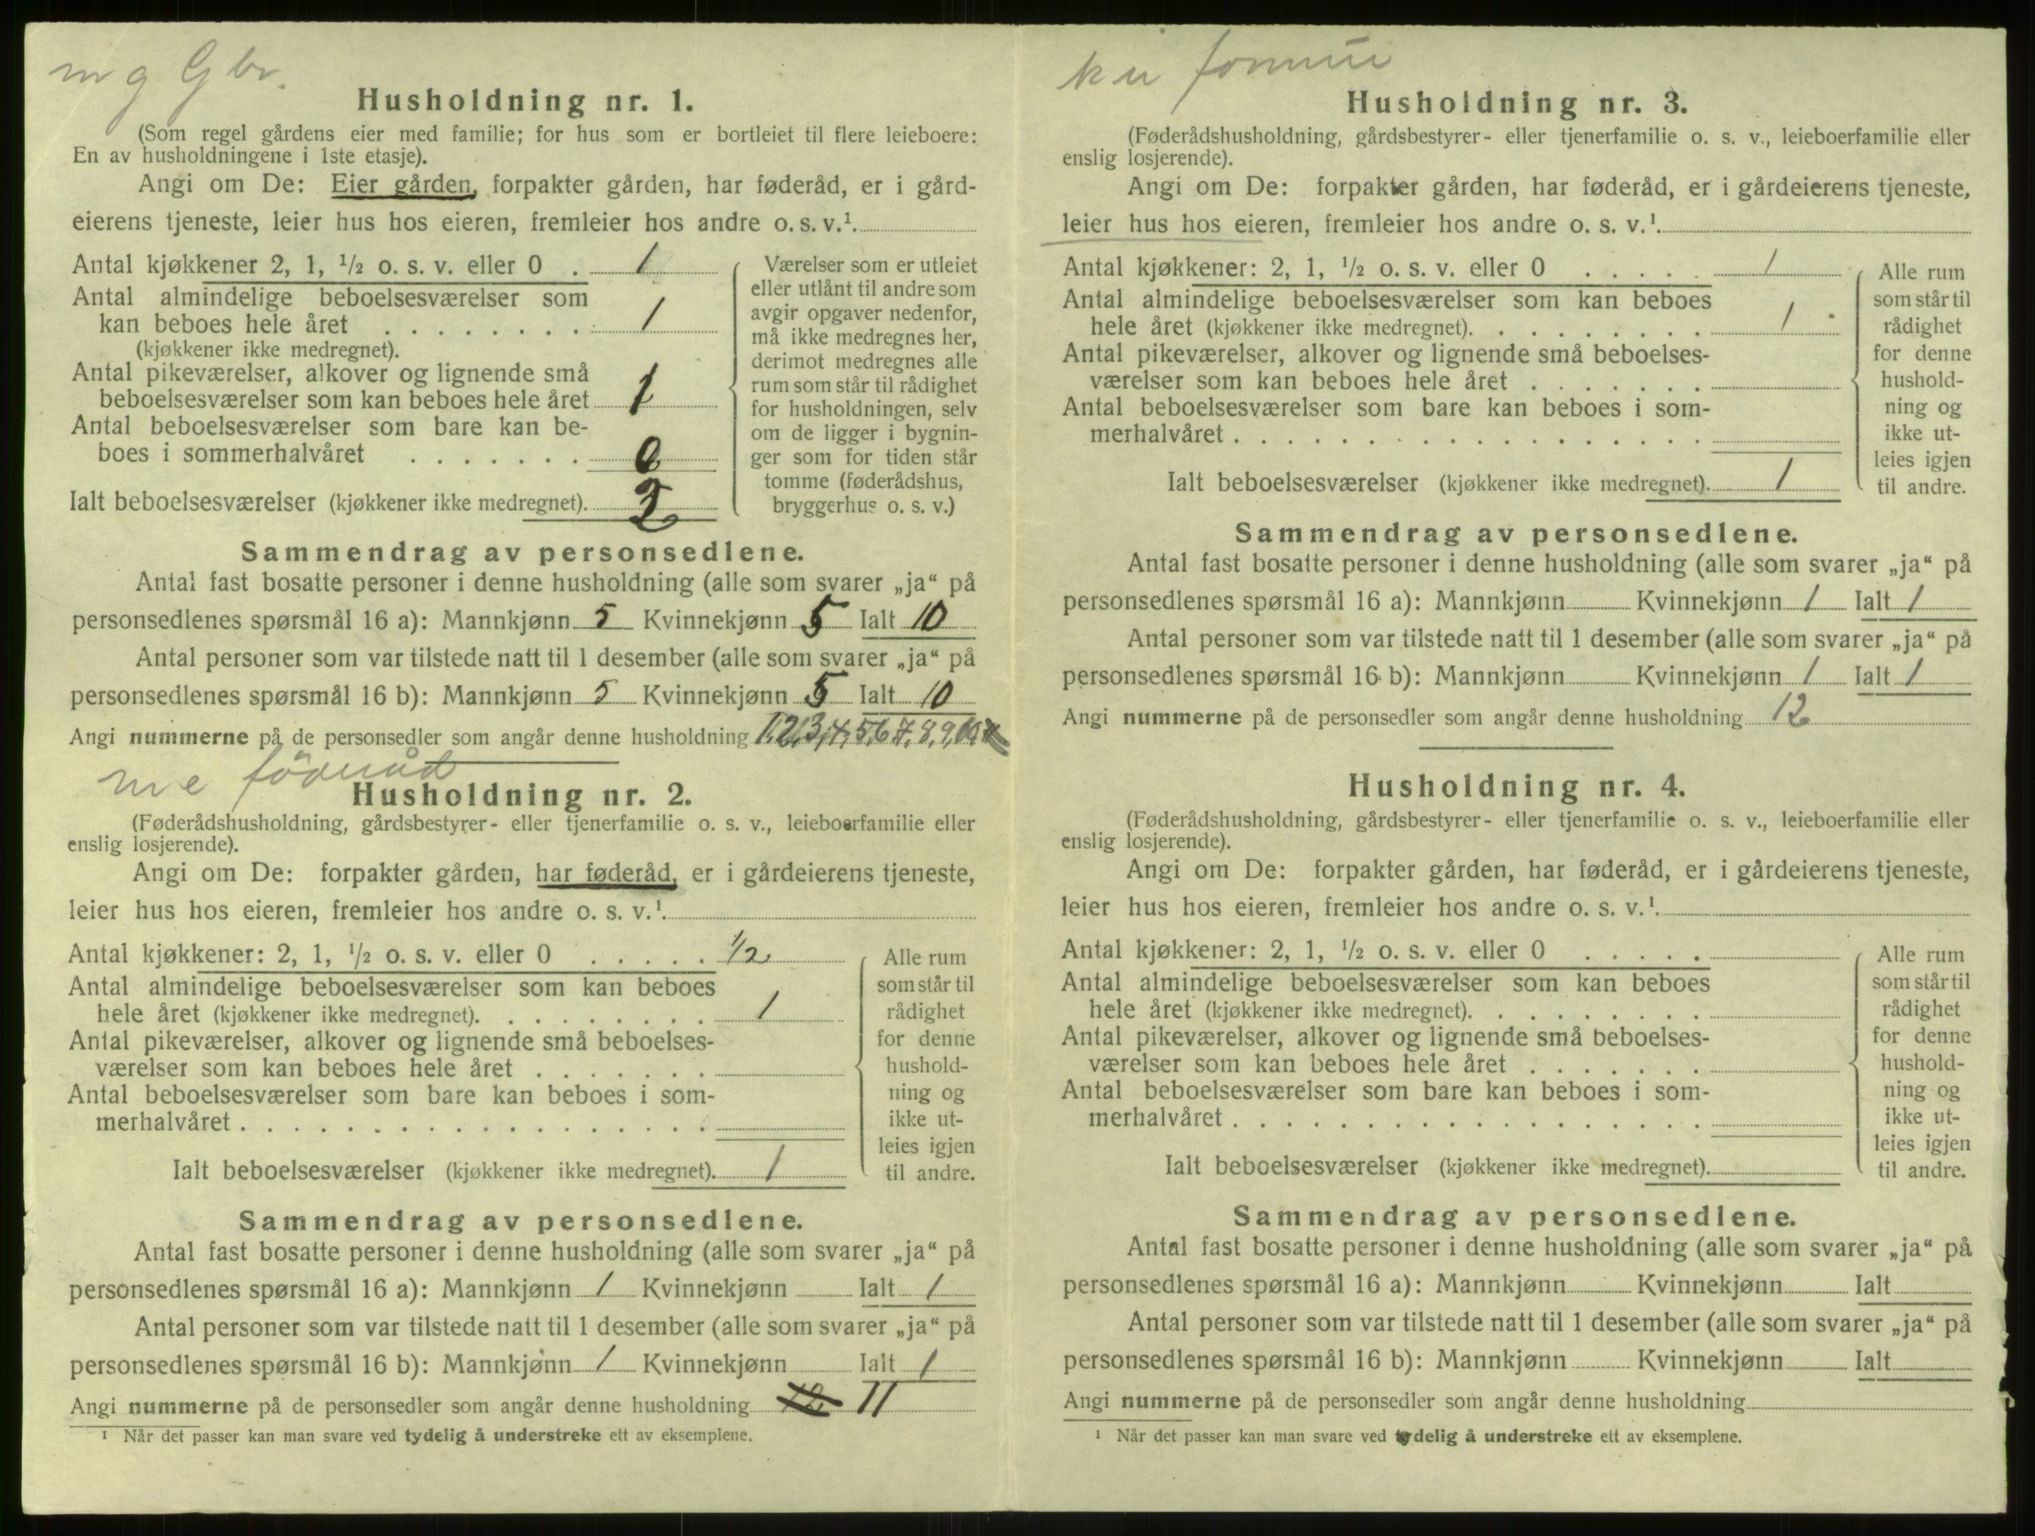 m g Gbr.
Husholdning nr. 1.
(Som regel gårdens eier med familie; for hus som er bortleiet til flere leieboere:
En av husholdningene i 1ste etasje).
Angi om De: Eier gården, forpakter gården, har føderåd, er i gård-
eierens tjeneste, leier hus hos eieren, fremleier hos andre o. s. v.¹
Antal kjøkkener 2, 1, ½ o. s. v. eller 0 . 1
Antal almindelige beboelsesværelser som
kan beboes hele året . . . . . . . . 1
(kjøkkener ikke medregnet).
Antal pikeværelser, alkover og lignende små
beboelsesværelser som kan beboes hele året 1
Antal beboelsesværelser som bare kan be-
boes i sommerhalvåret . . . . . . . 0
Ialt beboelsesværelser (kjøkkener ikke medregnet). 2
Værelser som er utleiet
eller utlånt til andre som
avgir opgaver nedenfor,
må ikke medregnes her,
derimot medregnes alle
rum som står til rådighet
for husholdningen, selv
om de ligger i bygnin-
ger som for tiden står
tomme (føderådshus,
bryggerhus o. s. v.)
Sammendrag av personsedlene.
Antal fast bosatte personer i denne husholdning (alle som svarer „ja“ på
personsedlenes spørsmål 16 a): Mannkjønn 5 Kvinnekjønn 5 Ialt 10
Antal personer som var tilstede natt til 1 desember (alle som svarer „ja“ på
personsedlenes spørsmål 16 b): Mannkjønn 5 Kvinnekjønn 5 Ialt 10
Angi nummerne på de personsedler som angår denne husholdning 1,2,3,4,5,6,7,8,9,10
m e føderåd
Husholdning nr. 2.
(Føderådshusholdning, gårdsbestyrer- eller tjenerfamilie o. s. v., leieboerfamilie eller
enslig losjerende).
Angi om De: forpakter gården, har føderåd, er i gårdeierens tjeneste,
leier hus hos eieren, fremleier hos andre o. s. v.¹
Antal kjøkkener: 2, 1, ½ o. s. v. eller 0 . . . . . 1/2
Antal almindelige beboelsesværelser som kan beboes
hele året (kjøkkener ikke medregnet). . . . . . . . . 1
Antal pikeværelser, alkover og lignende små beboelses-
værelser som kan beboes hele året . . . . . . .
Antal beboelsesværelser som bare kan beboes i som-
merhalvåret . . . . . . . . . . . . . . . . . .
Ialt beboelsesværelser (kjøkkener ikke medregnet). 1
Alle rum
som står til
rådighet
for denne
hushold-
ning og
ikke ut-
leies igjen
til andre.
Sammendrag av personsedlene.
Antal fast bosatte personer i denne husholdning (alle som svarer „ja“ på
personsedlenes spørsmål 16 a): Mannkjønn 1 Kvinnekjønn Ialt 1
Antal personer som var tilstede natt til 1 desember (alle som svarer „ja“ på
personsedlenes spørsmål 16 b): Mannkjønn 1 Kvinnekjønn Ialt 1
Angi nummerne på de personsedler som angår denne husholdning 12 11
¹ Når det passer kan man svare ved tydelig å understreke ett av eksemplene.
Husholdning nr. 3.
(Føderådshusholdning, gårdsbestyrer- eller tjenerfamilie o. s. v., leieboerfamilie eller
enslig losjerende).
Angi om De: forpakter gården, har føderåd, er i gårdeierens tjeneste,
leier hus hos eieren, fremleier hos andre o. s. v.¹
Antal kjøkkener: 2, 1, ½ o. s. v. eller 0 . . . . . 1
Antal almindelige beboelsesværelser som kan beboes
hele året (kjøkkener ikke medregnet). . . . . . . . . 1
Antal pikeværelser, alkover og lignende små beboelses-
værelser som kan beboes hele året . . . . . . .
Antal beboelsesværelser som bare kan beboes i som-
merhalvåret . . . . . . . . . . . . . . . . . .
Ialt beboelsesværelser (kjøkkener ikke medregnet). 1
Alle rum
som står til
rådighet
for denne
hushold-
ning og
ikke ut-
leies igjen
til andre.
Sammendrag av personsedlene.
Antal fast bosatte personer i denne husholdning (alle som svarer „ja“ på
personsedlenes spørsmål 16 a): Mannkjønn Kvinnekjønn 1 Ialt 1
Antal personer som var tilstede natt til 1 desember (alle som svarer „ja“ på
personsedlenes spørsmål 16 b): Mannkjønn Kvinnekjønn 1 Ialt 1
Angi nummerne på de personsedler som angår denne husholdning 12
Husholdning nr. 4.
(Føderådshusholdning, gårdsbestyrer- eller tjenerfamilie o. s. v., leieboerfamilie eller
enslig losjerende).
Angi om De: forpakter gården, har føderåd, er i gårdeierens tjeneste,
leier hus hos eieren, fremleier hos andre o. s. v.¹
Antal kjøkkener: 2, 1, ½ o. s. v. eller 0 . . . . .
Antal almindelige beboelsesværelser som kan beboes
hele året (kjøkkener ikke medregnet). . . . . . . . .
Antal pikeværelser, alkover og lignende små beboelses-
værelser som kan beboes hele året . . . . . . .
Antal beboelsesværelser som bare kan beboes i som-
merhalvåret . . . . . . . . . . . . . . . . . .
Ialt beboelsesværelser (kjøkkener ikke medregnet).
Alle rum
som står til
rådighet
for denne
hushold-
ning og
ikke ut-
leies igjen
til andre.
Sammendrag av personsedlene.
Antal fast bosatte personer i denne husholdning (alle som svarer „ja“ på
personsedlenes spørsmål 16 a): Mannkjønn Kvinnekjønn Ialt
Antal personer som var tilstede natt til 1 desember (alle som svarer „ja“ på
personsedlenes spørsmål 16 b): Mannkjønn Kvinnekjønn Ialt
Angi nummerne på de personsedler som angår denne husholdning
¹ Når det passer kan man svare ved tydelig å understreke ett av eksemplene.